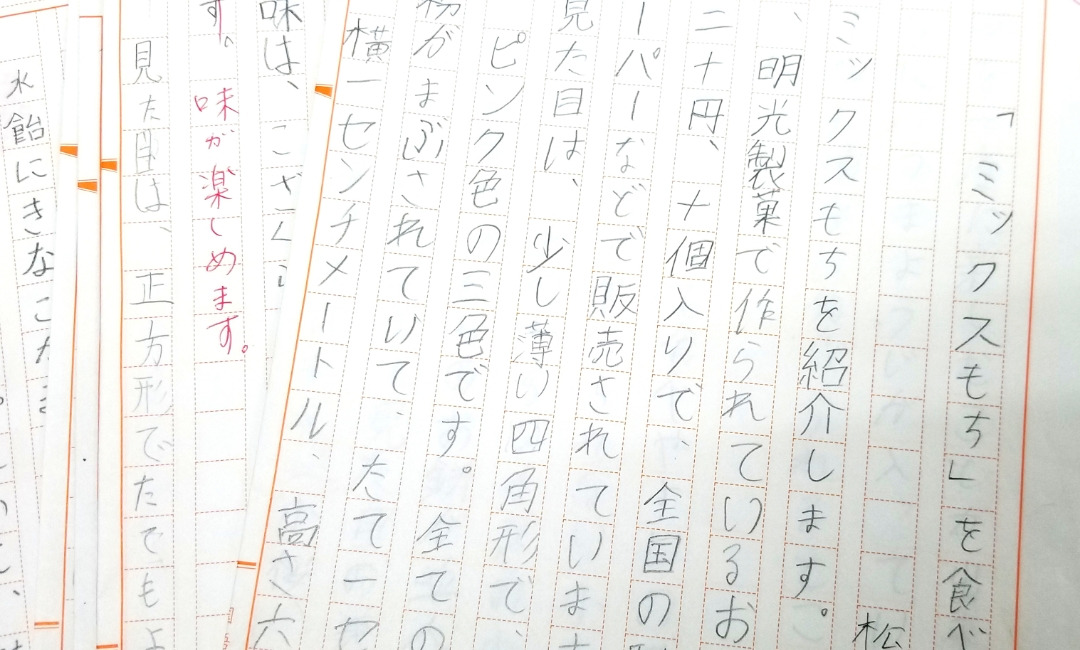 「ミックスもち」を食べ
松
ミックスもちを紹介します。
明光製菓で作られているお
二十円、十個入りで、全国の
ーパーなどで販売されていま
見た目は、少し薄い四角形で、
ピンク色の三色です。全ての
粉がまぶされていて、たて一セ
横一センチメートル、高さ六
味は、
す。味が楽しめます。
見た目は、正方形でたでもよ
水飴にきなこ